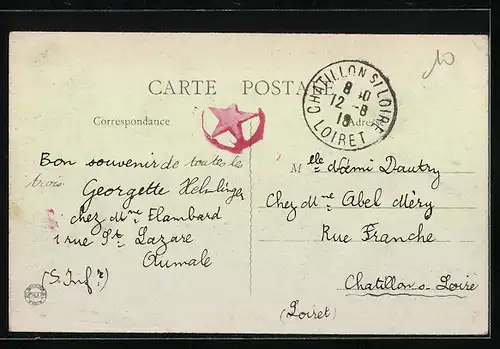 10
CARTE POSTALE
CHATILLON S/ LOIRE
8 40
12 -8
18
LOIRET
Correspondance
Adresse
Bon souvenir de toutes les
trois
Georgette
chez Mme Flambard
1 rue St Lazare
Aumale
(S. Infre)
Melle Noémi Dautry
Chez Mme Abel Méry
Rue Franche
Chatillon s. Loire
(Loiret)